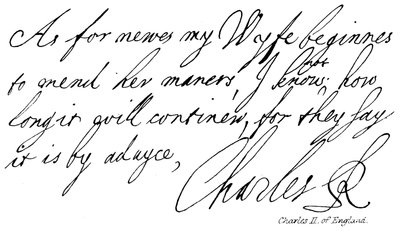 As for newes my Wyfe beginnes
to mend her maners, I know not how
long it will continew, for they say
it is by aduyce,
Charles R
Charles II. of England.